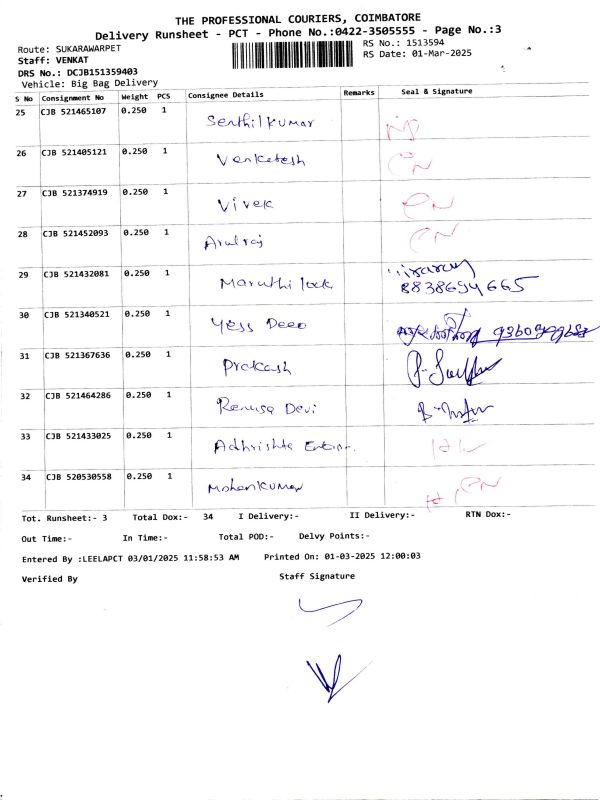 THE PROFESSIONAL COURIERS, COIMBATORE
Delivery Runsheet - PCT - Phone No.:0422-3505555 - Page No.:3
Route: SUKARAWARPET
RS No.: 1513594
Staff: VENKAT
RS Date: 01-Mar-2025
DRS No.: DCJB151359403
Vehicle: Big Bag Delivery
S No Consignment No Weight PCS Consignee Details Remarks Seal & Signature
25 CJB 521465107 0.250 1 Senthilkumar
26 CJB 521405121 0.250 1 Venketesh
27 CJB 521374919 0.250 1 Vivek
28 CJB 521452093 0.250 1 Arulraj
29 CJB 521432081 0.250 1 Maruthi lock 8838694665
30 CJB 521340521 0.250 1 Yess Deeo
31 CJB 521367636 0.250 1 Prakash
32 CJB 521464286 0.250 1 Renusa Devi
33 CJB 521433025 0.250 1 Adhrishta
34 CJB 520530558 0.250 1 Mohankumar
Tot. Runsheet:- 3 Total Dox:- 34 I Delivery:- II Delivery:- RTN Dox:-
Out Time:- In Time:- Total POD:- Delvy Points:-
Entered By :LEELAPCT 03/01/2025 11:58:53 AM Printed On: 01-03-2025 12:00:03
Verified By Staff Signature